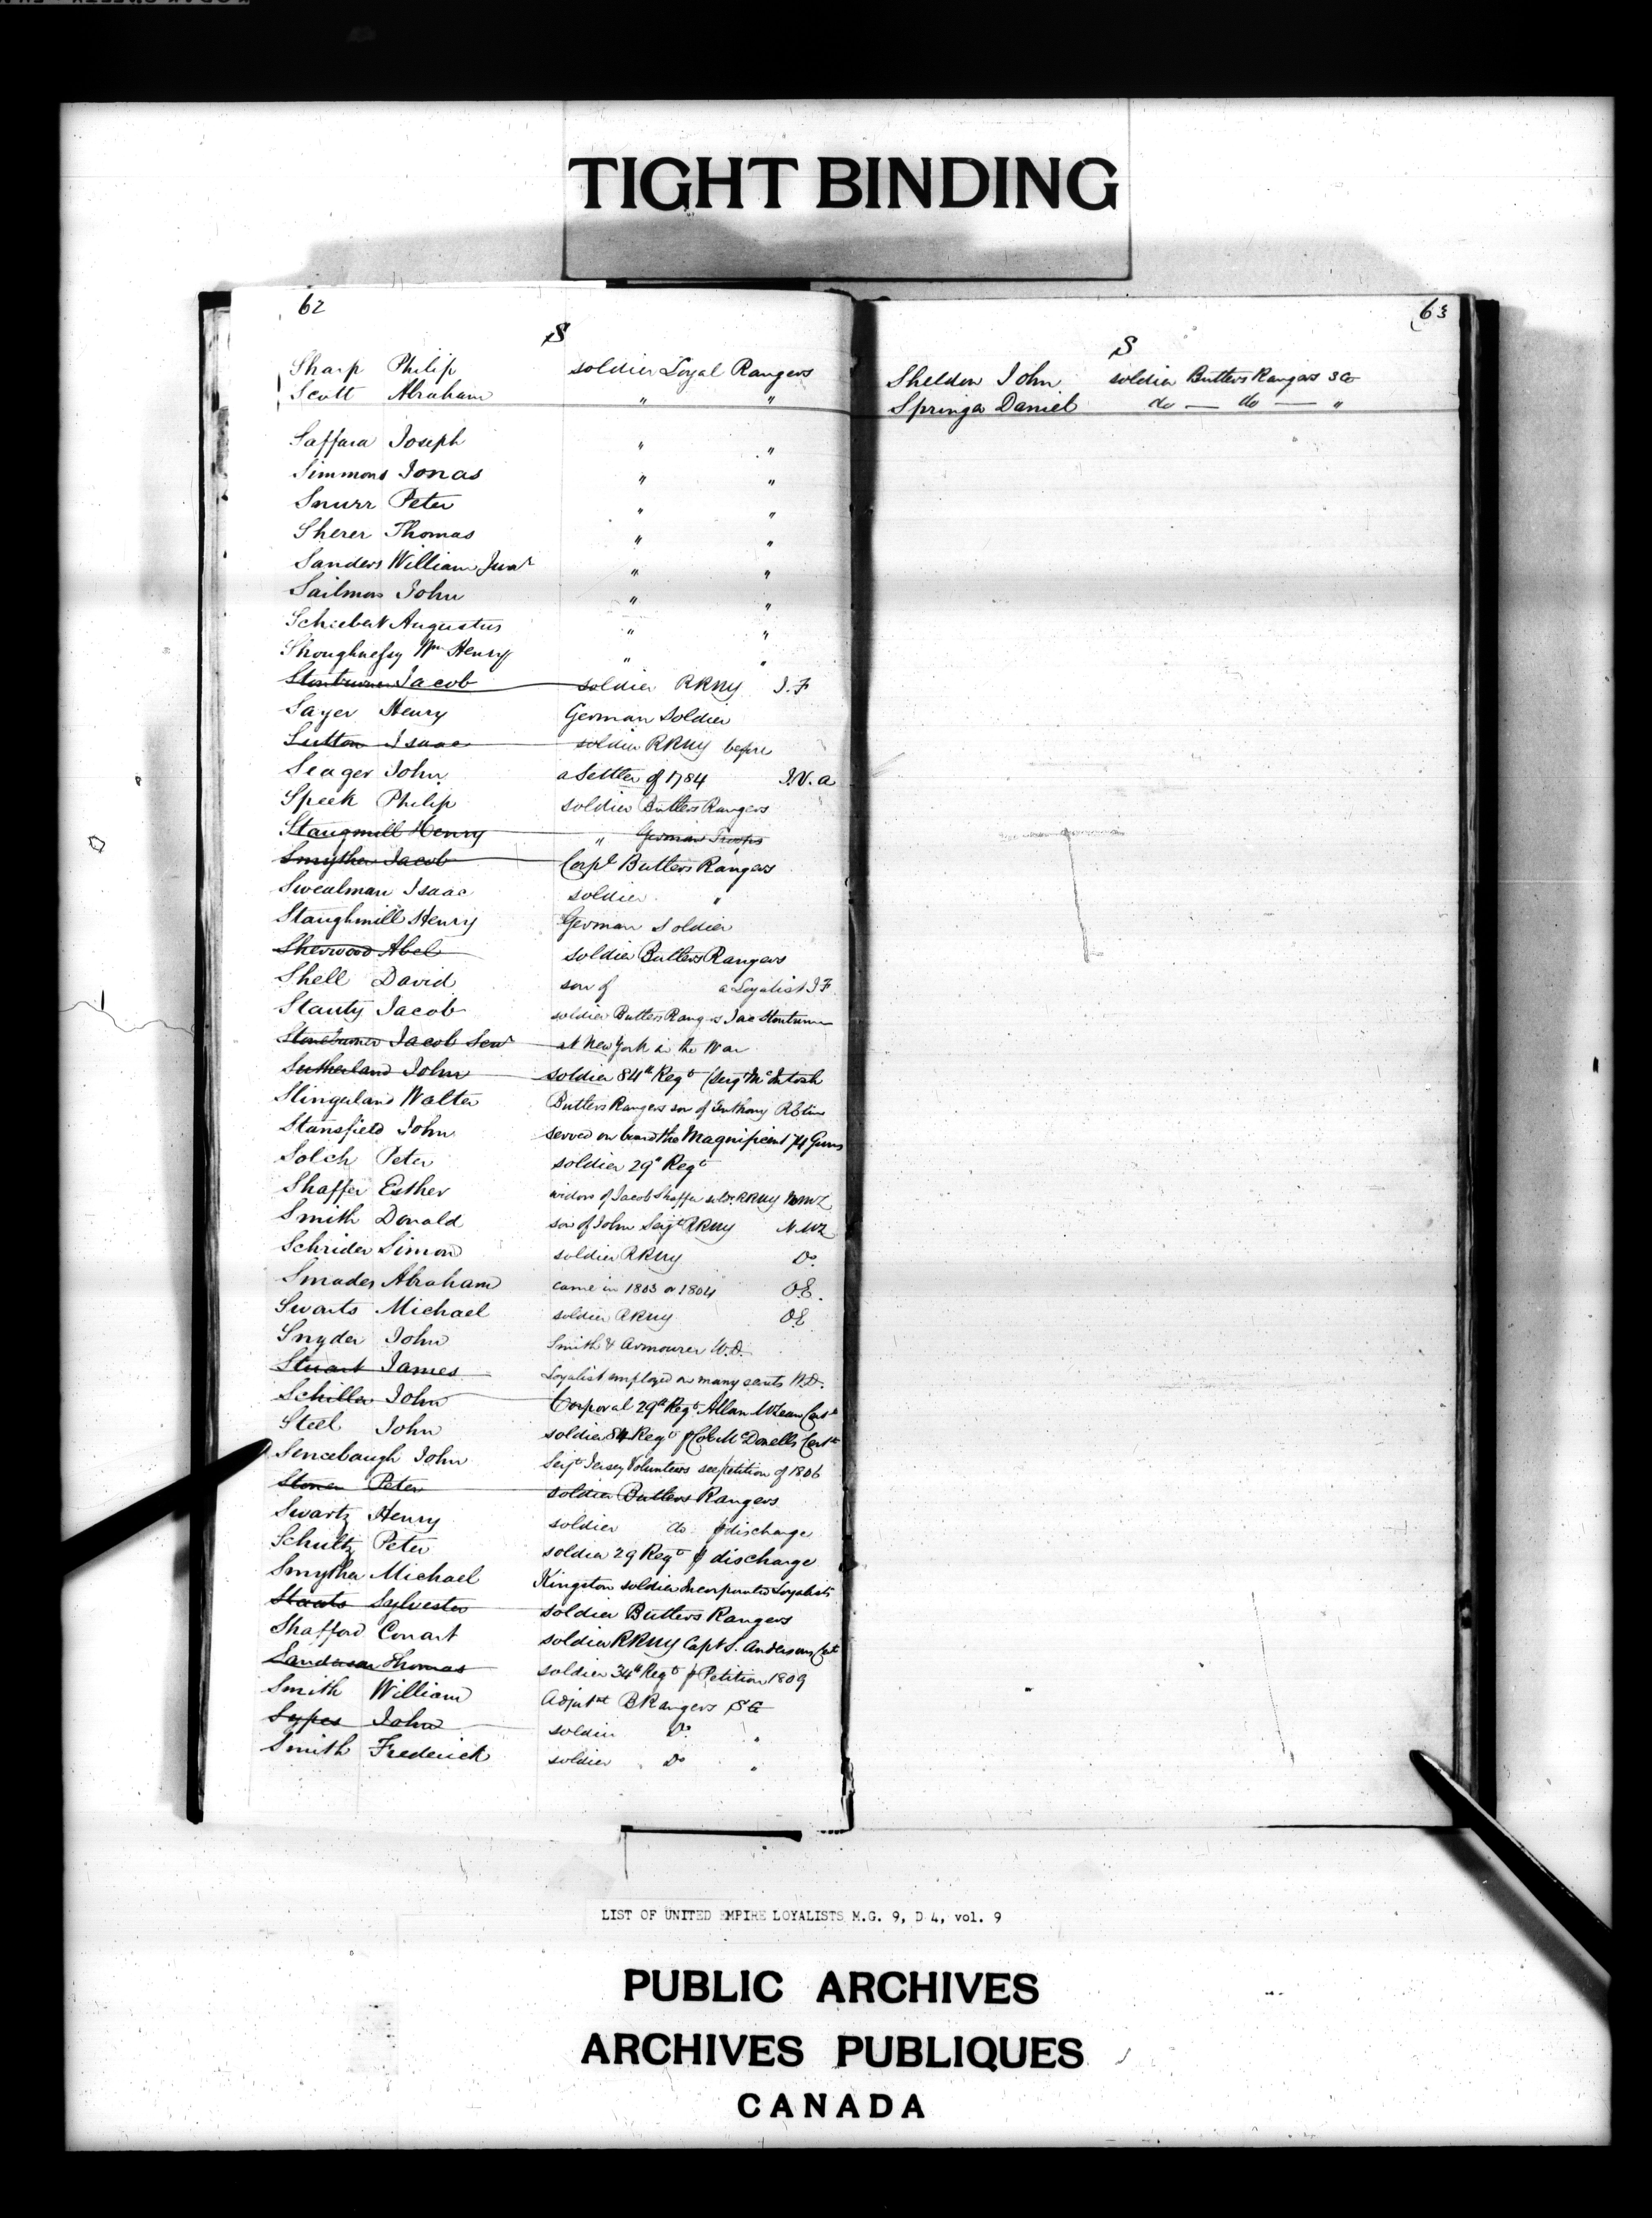 TIGHT BINDING
62
S
Sharp Philip soldier Loyal Rangers
Scott Abraham " "
Saffara Joseph " "
Simmons Jonas " "
Snurr Peter " "
Sherer Thomas " "
Sanders William Junr " "
Sailman John " "
Schiebert Augustus " "
Shoughnessy Wm Henry " "
Stonburner Jacob soldier RRNY J.F
Sayer Henry German Soldier
Sutton Isaac soldier RRNY before
Seager John a Settler of 1784 J.N.a
Speek Philip soldier Butlers Rangers
Staugmill Henry " German Troops
Smyther Jacob Corpl Butlers Rangers
Swealman Isaac soldier "
Staughmill Henry German soldier
Sherwood Abel soldier Butlers Rangers
Shell David son of a Loyalist J F
Stauty Jacob soldier Butlers Rangs Jac
Stoneburner Jacob Senr at New York in the War
Sutherland John soldier 84th Regt (Sergt McIntosh
Slingerland Walter Butlers Rangers son of Anthony
Stansfield John served on board the Magnificent 74 Guns
Solch Peter soldier 29th Regt
Shaffer Esther widow of Jacob Shaffer soldr RRNY
Smith Donald son of John Sergt RRNY
Schrider Simon soldier RRNY Do.
Smades Abraham came in 1803 or 1804 O.E.
Swarts Michael soldier RRNY O.E
Snyder John Smith & Armourer W.D.
Stuart James Loyalist employed on many scouts W.D.
Schiller John Corporal 29th Regt Allan McLean Cert
Steel John soldier 84 Regt p Col. McDonells Cert
Sencebaugh John Sergt Jersey Volunteers see petition of 1806
Stoner Peter soldier Butlers Rangers
Swartz Henry soldier do p discharge
Schultz Peter soldier 29 Regt p discharge
Smyther Michael Kingston soldier Incorporated Loyalists
Staats Sylvester soldier Butlers Rangers
Shafford Conart soldier RRNY Capt S. Andersons Cert
Sanderson Thomas soldier 34th Regt p Petition 1809
Smith William Adjutnt B Rangers S G
Sypes John soldier Do "
Smith Frederick soldier Do "
63
S
Sheldon John soldier Butlers Rangers
Springer Daniel do — do — "
LIST OF UNITED EMPIRE LOYALISTS M.G. 9, D 4, vol. 9
PUBLIC ARCHIVES
ARCHIVES PUBLIQUES
CANADA